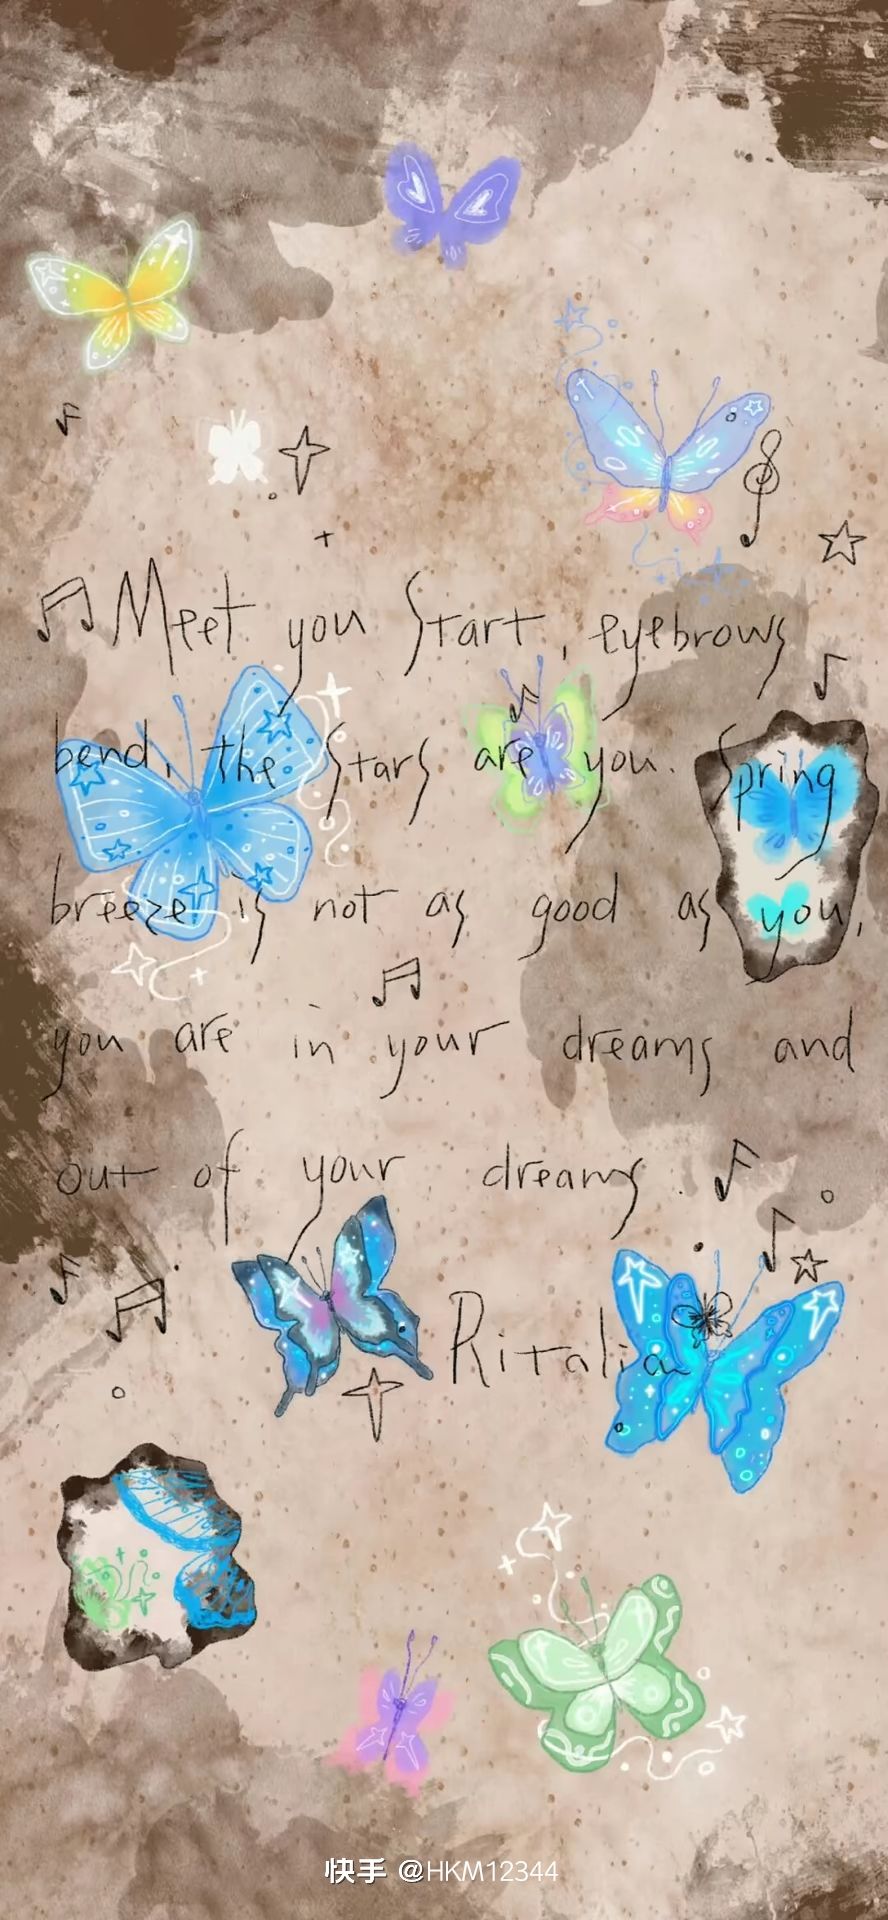 Meet you Start, eyebrows
bend, the Stars are you. Spring
breeze is not as good as you,
you are in your dreams and
out of your dreams.
Ritalia
快手 @HKM12344